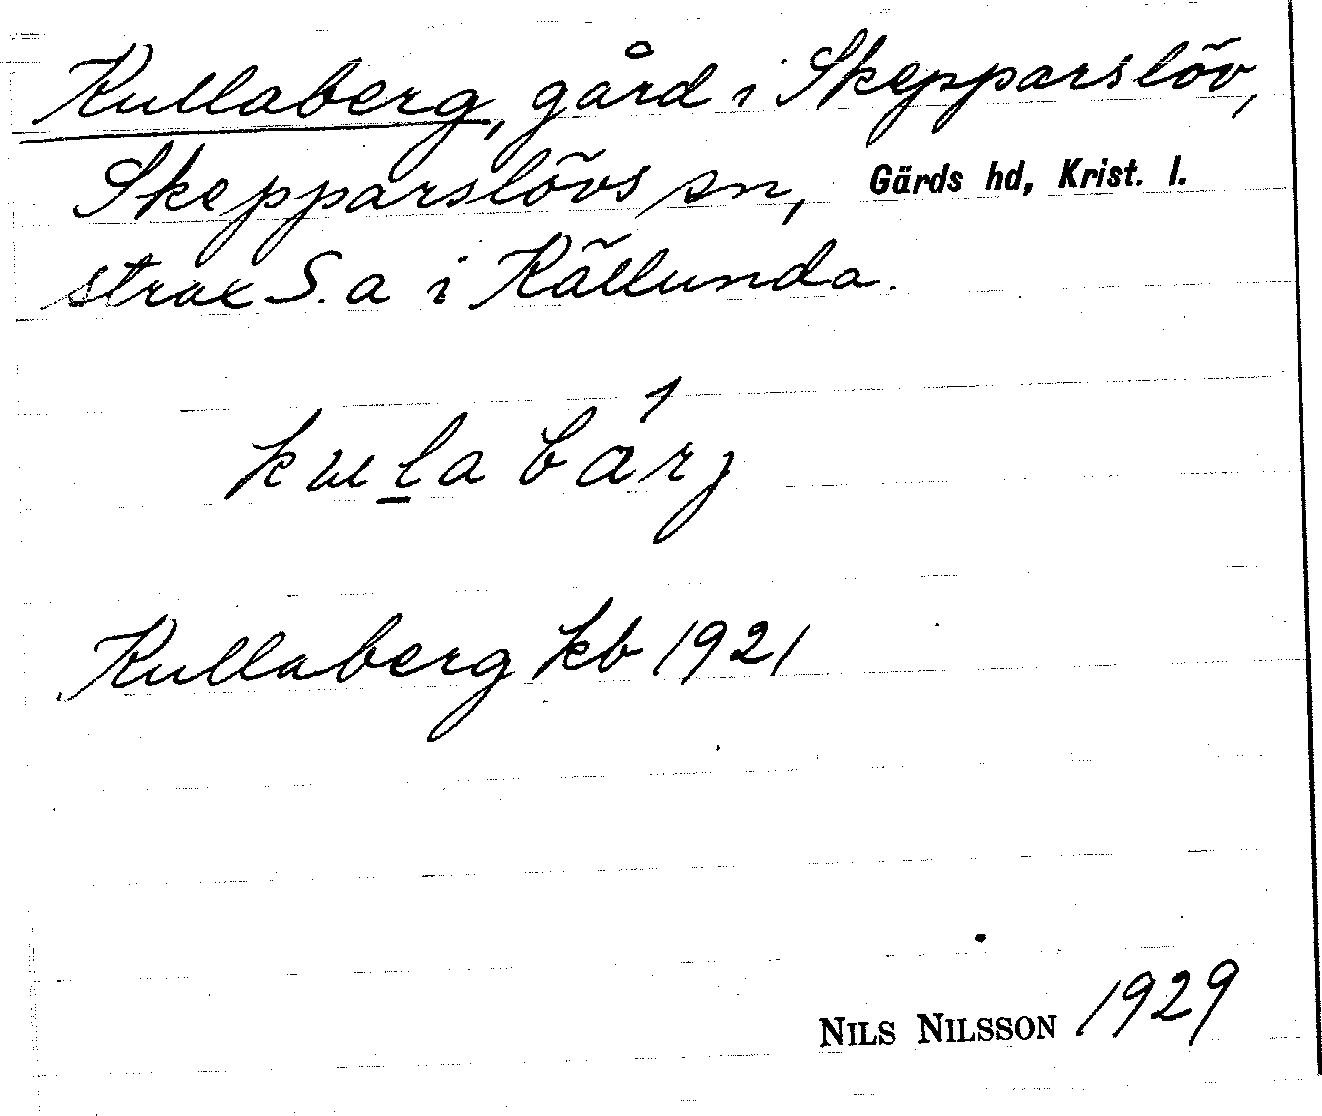 Kullaberg, gård i Skepparslöv,
Skepparslövs sn, Gärds hd, Krist. l.
strax S. a i Källunda.
kulabárj
Kullaberg kb 1921
NILS NILSSON 1929